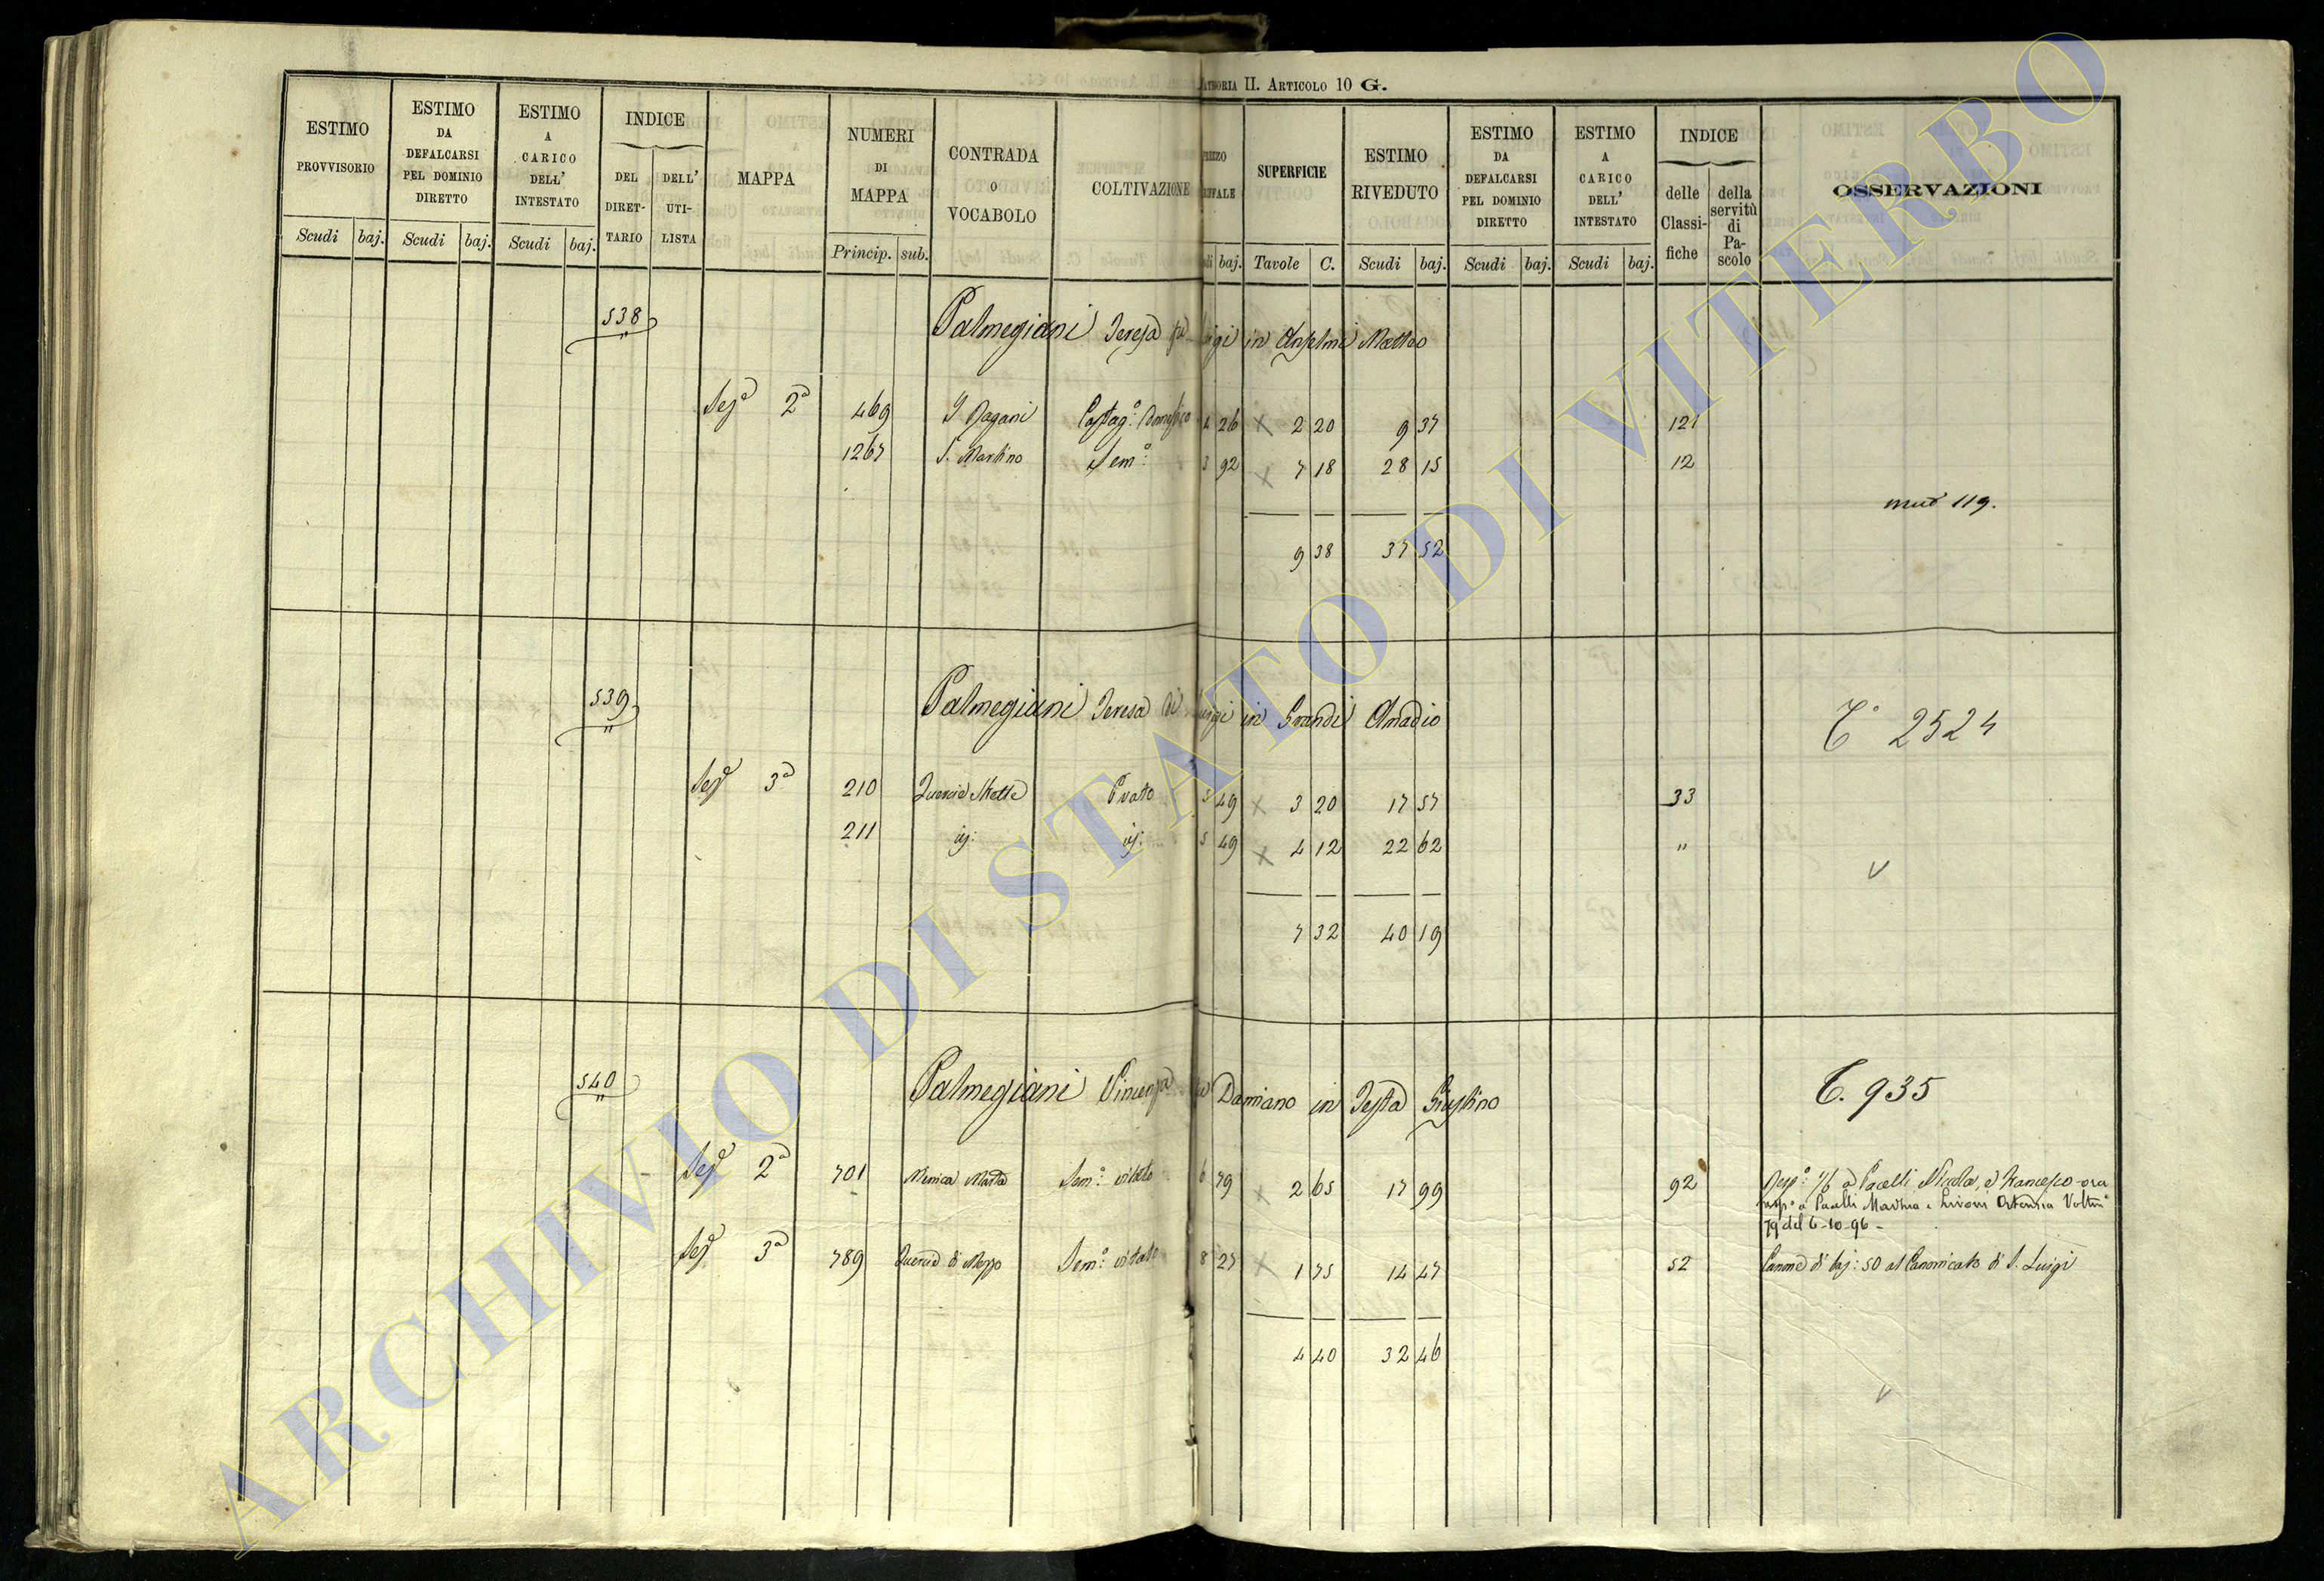 II. ARTICOLO 10 G.
ESTIMO PROVVISORIO
ESTIMO DA DEFALCARSI PEL DOMINIO DIRETTO
ESTIMO A CARICO DELL' INTESTATO
INDICE
DEL DIRET-TARIO
DELL' UTI-LISTA
MAPPA
NUMERI DI MAPPA
CONTRADA O VOCABOLO
COLTIVAZIONE
SUPERFICIE
ESTIMO RIVEDUTO
ESTIMO DA DEFALCARSI PEL DOMINIO DIRETTO
ESTIMO A CARICO DELL' INTESTATO
INDICE
delle Classi-fiche
della servitù di Pa-scolo
OSSERVAZIONI
Scudi baj. Scudi baj. Scudi baj. Princip. sub. baj. Tavole C. Scudi baj. Scudi baj. Scudi baj.
538 Palmegiani Teresa in Anselmi Matteo
Sez.ª 2ª 469 I Pagani 4 26 2 20 9 37 121
1267 S. Martino Sem.º 3 92 7 18 28 15 12
119.
9 38 37 52
539 Palmegiani Teresa di Luigi in Grandi Amadio
2524
Sez.ª 3ª 210 Prato 5 49 3 20 17 57 33
211 id: id: 5 49 4 12 22 62 "
V
7 32 40 19
540 Palmegiani Vincenza Damiano in Testa Giustino
C. 935
Sez.ª 2ª 701 Sem.º vitato 6 79 2 65 17 99 92
79 del 6-10-96 -
Sez.ª 3ª 789 Quercia di Mezzo Sem.º vitato 8 27 1 75 14 47 52 Canone di baj: 50 al Canonicato di S. Luigi
4 40 32 46
V
ARCHIVIO DI STATO DI VITERBO